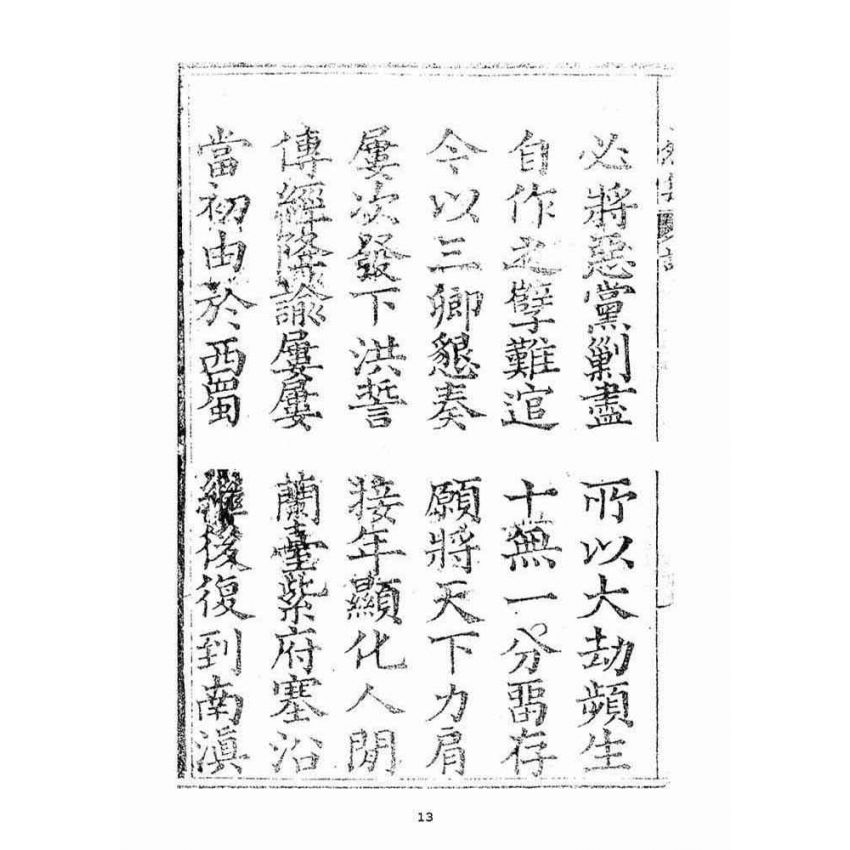 必將惡黨剿盡 所以大劫頻生
自作之孽難逭 十無一分畱存
令以三卿懇奏 願將天下力肩
屢次發下洪誓 接年顯化人間
傳經降諭屢屢 蘭臺紫府塞沿
當初由於西蜀 繼後復到南滇
13